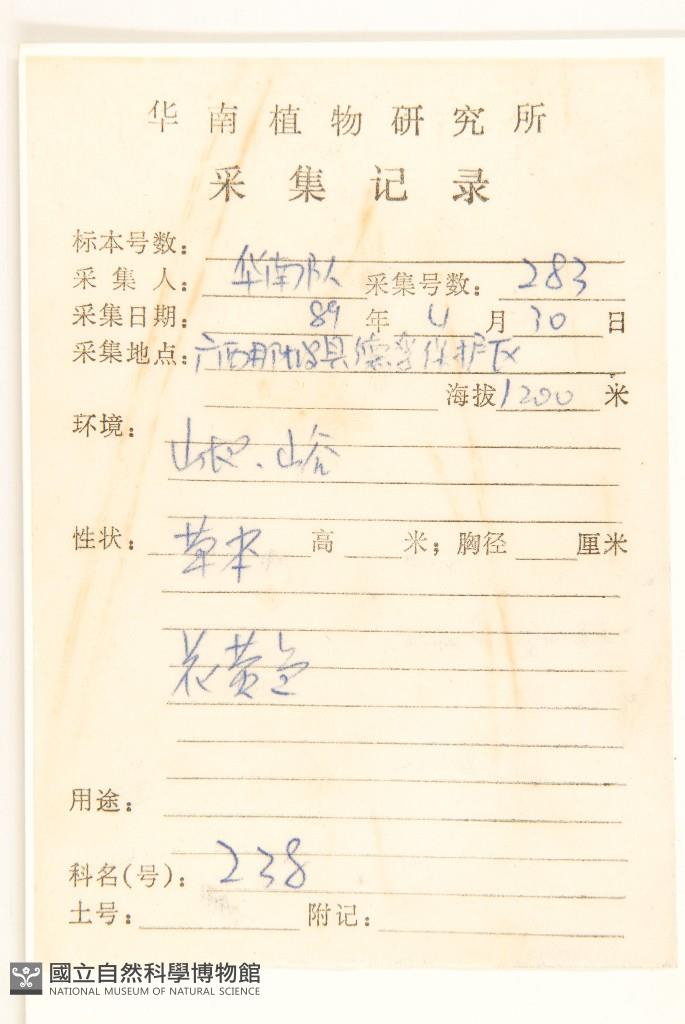 华南植物研究所
采集记录
标本号数：
采集人：华南队 采集号数：283
采集日期：89年4月30日
采集地点：广西那坡县德孚保护区
海拔1200米
环境：
山坡、山谷
性状：草本 高 米；胸径 厘米
花黄色
用途：
科名(号)：238
土号： 附记：
國立自然科學博物館
NATIONAL MUSEUM OF NATURAL SCIENCE